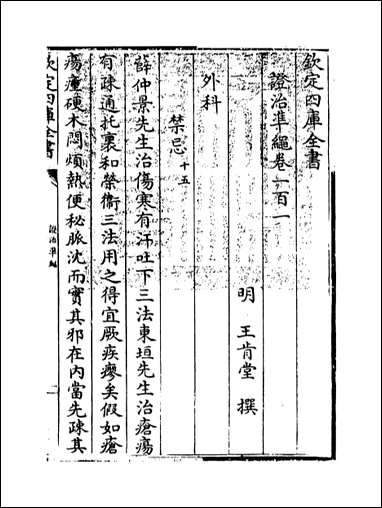 欽定四庫全書
證治準繩卷一百一
明 王肯堂 撰
外科
禁忌十五
薛仲景先生治傷寒有汗吐下三法東垣先生治瘡瘍
有疎通托裏和榮衞三法用之得宜厥疾瘳矣假如瘡
瘍瘇硬木悶煩熱便秘脈沈而實其邪在內當先疎其
欽定四庫全書
證治準繩